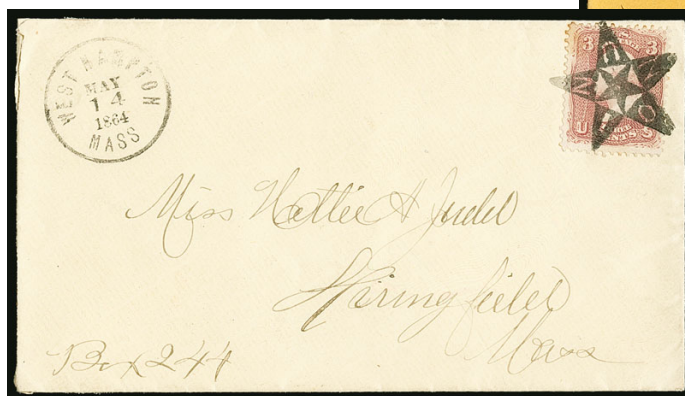 WEST HAMPTON
MAY
14
1864
MASS
3 3
U S
Miss Hattie A Judd
Springfield
Mass
Box 244